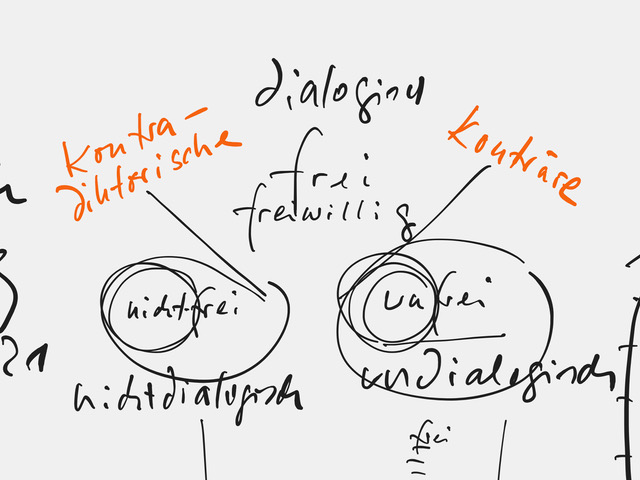 dialogisch
Kontra-
diktorische
Konträre
frei
freiwillig
nichtfrei
unfrei
21
nichtdialogisch
undialogisch
frei